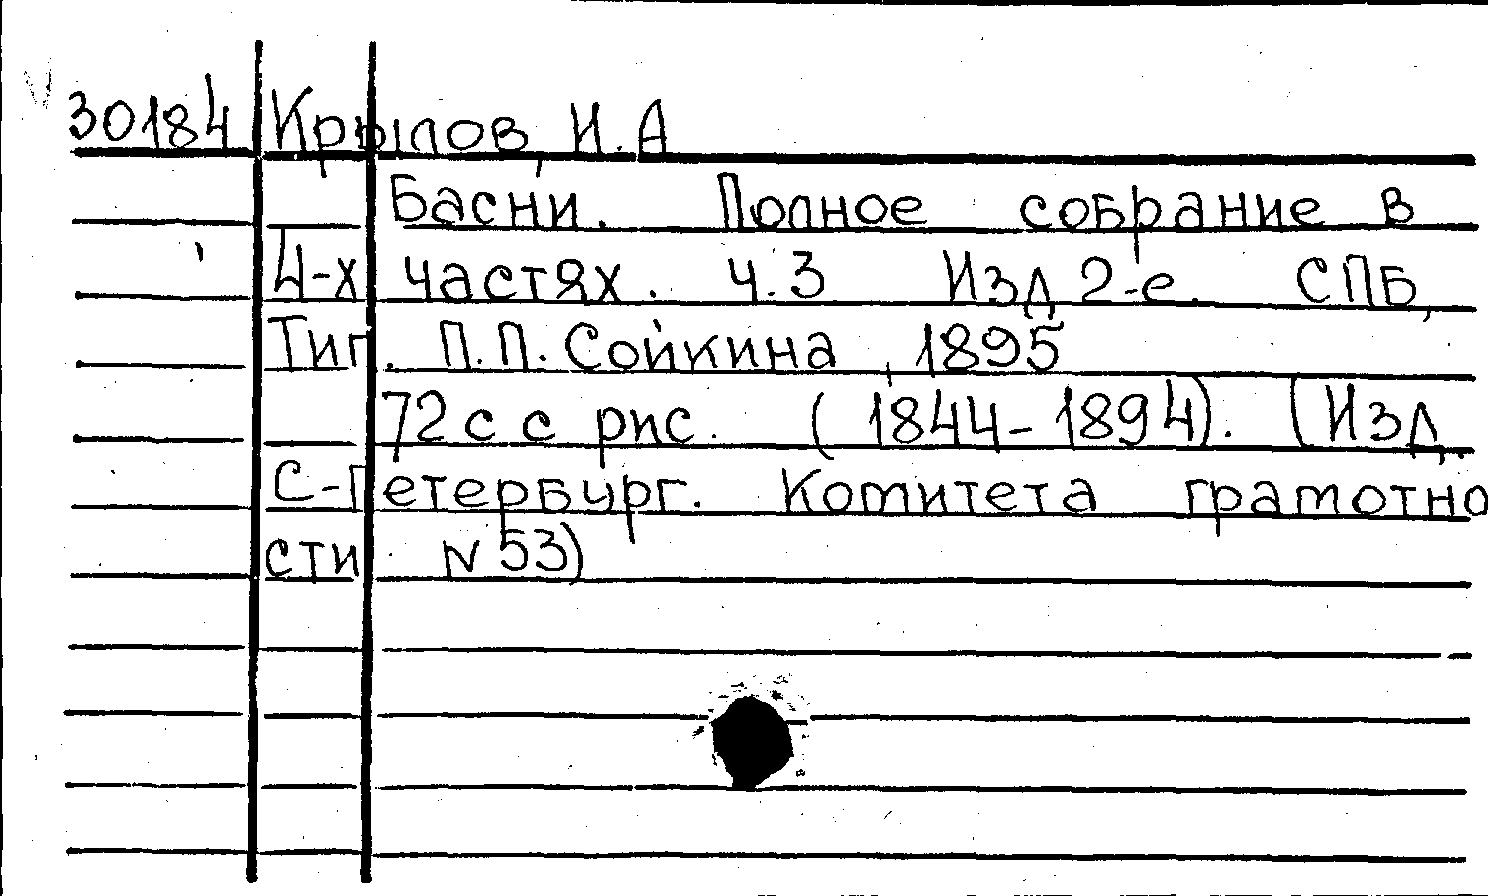 30184 Крылов, И.А
Басни. Полное собрание в
4-х частях. ч.3 Изд 2-е. СПБ,
Тип. П.П. Сойкина, 1895
72 с с рис. (1844-1894). (Изд.
С-Петербург. Комитета грамотно
сти N 53)